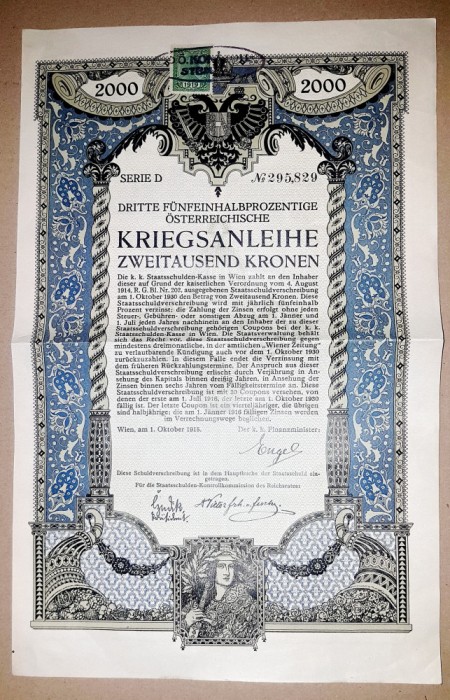 2000
2000
SERIE D
№ 295,829
DRITTE FÜNFEINHALBPROZENTIGE
ÖSTERREICHISCHE
KRIEGSANLEIHE
ZWEITAUSEND KRONEN
Die k. k. Staatsschulden-Kasse in Wien zahlt an den Inhaber
dieser auf Grund der kaiserlichen Verordnung vom 4. August
1914, R. G. Bl. Nr. 202, ausgegebenen Staatsschuldverschreibung
am 1. Oktober 1930 den Betrag von Zweitausend Kronen. Diese
Staatsschuldverschreibung wird mit jährlich fünfeinhalb
Prozent verzinst; die Zahlung der Zinsen erfolgt ohne jeden
Steuer-, Gebühren- oder sonstigen Abzug am 1. Jänner und
1. Juli jeden Jahres nachhinein an den Inhaber der zu dieser
Staatsschuldverschreibung gehörigen Coupons bei der k. k.
Staatsschulden-Kasse in Wien. Die Staatsverwaltung behält
sich das Recht vor, diese Staatsschuldverschreibung gegen
mindestens dreimonatliche, in der amtlichen „Wiener Zeitung“
zu verlautbarende Kündigung auch vor dem 1. Oktober 1930
zurückzuzahlen. In diesem Falle endet die Verzinsung mit
dem früheren Rückzahlungstermine. Der Anspruch aus dieser
Staatsschuldverschreibung erlischt durch Verjährung in An-
sehung des Kapitals binnen dreißig Jahren, in Ansehung der
Zinsen binnen sechs Jahren vom Fälligkeitstermine an. Diese
Staatsschuldverschreibung ist mit 30 Coupons versehen, von
denen der erste am 1. Juli 1916, der letzte am 1. Oktober 1930
fällig ist. Der letzte Coupon ist ein vierteljähriger, die übrigen
sind halbjährige; die am 1. Jänner 1916 fälligen Zinsen werden
im Verrechnungswege beglichen.
Wien, am 1. Oktober 1915.
Der k. k. Finanzminister:
Engel
Diese Schuldverschreibung ist in dem Hauptbuche der Staatsschuld ein-
getragen.
Für die Staatsschulden-Kontrollkommission des Reichsrates: